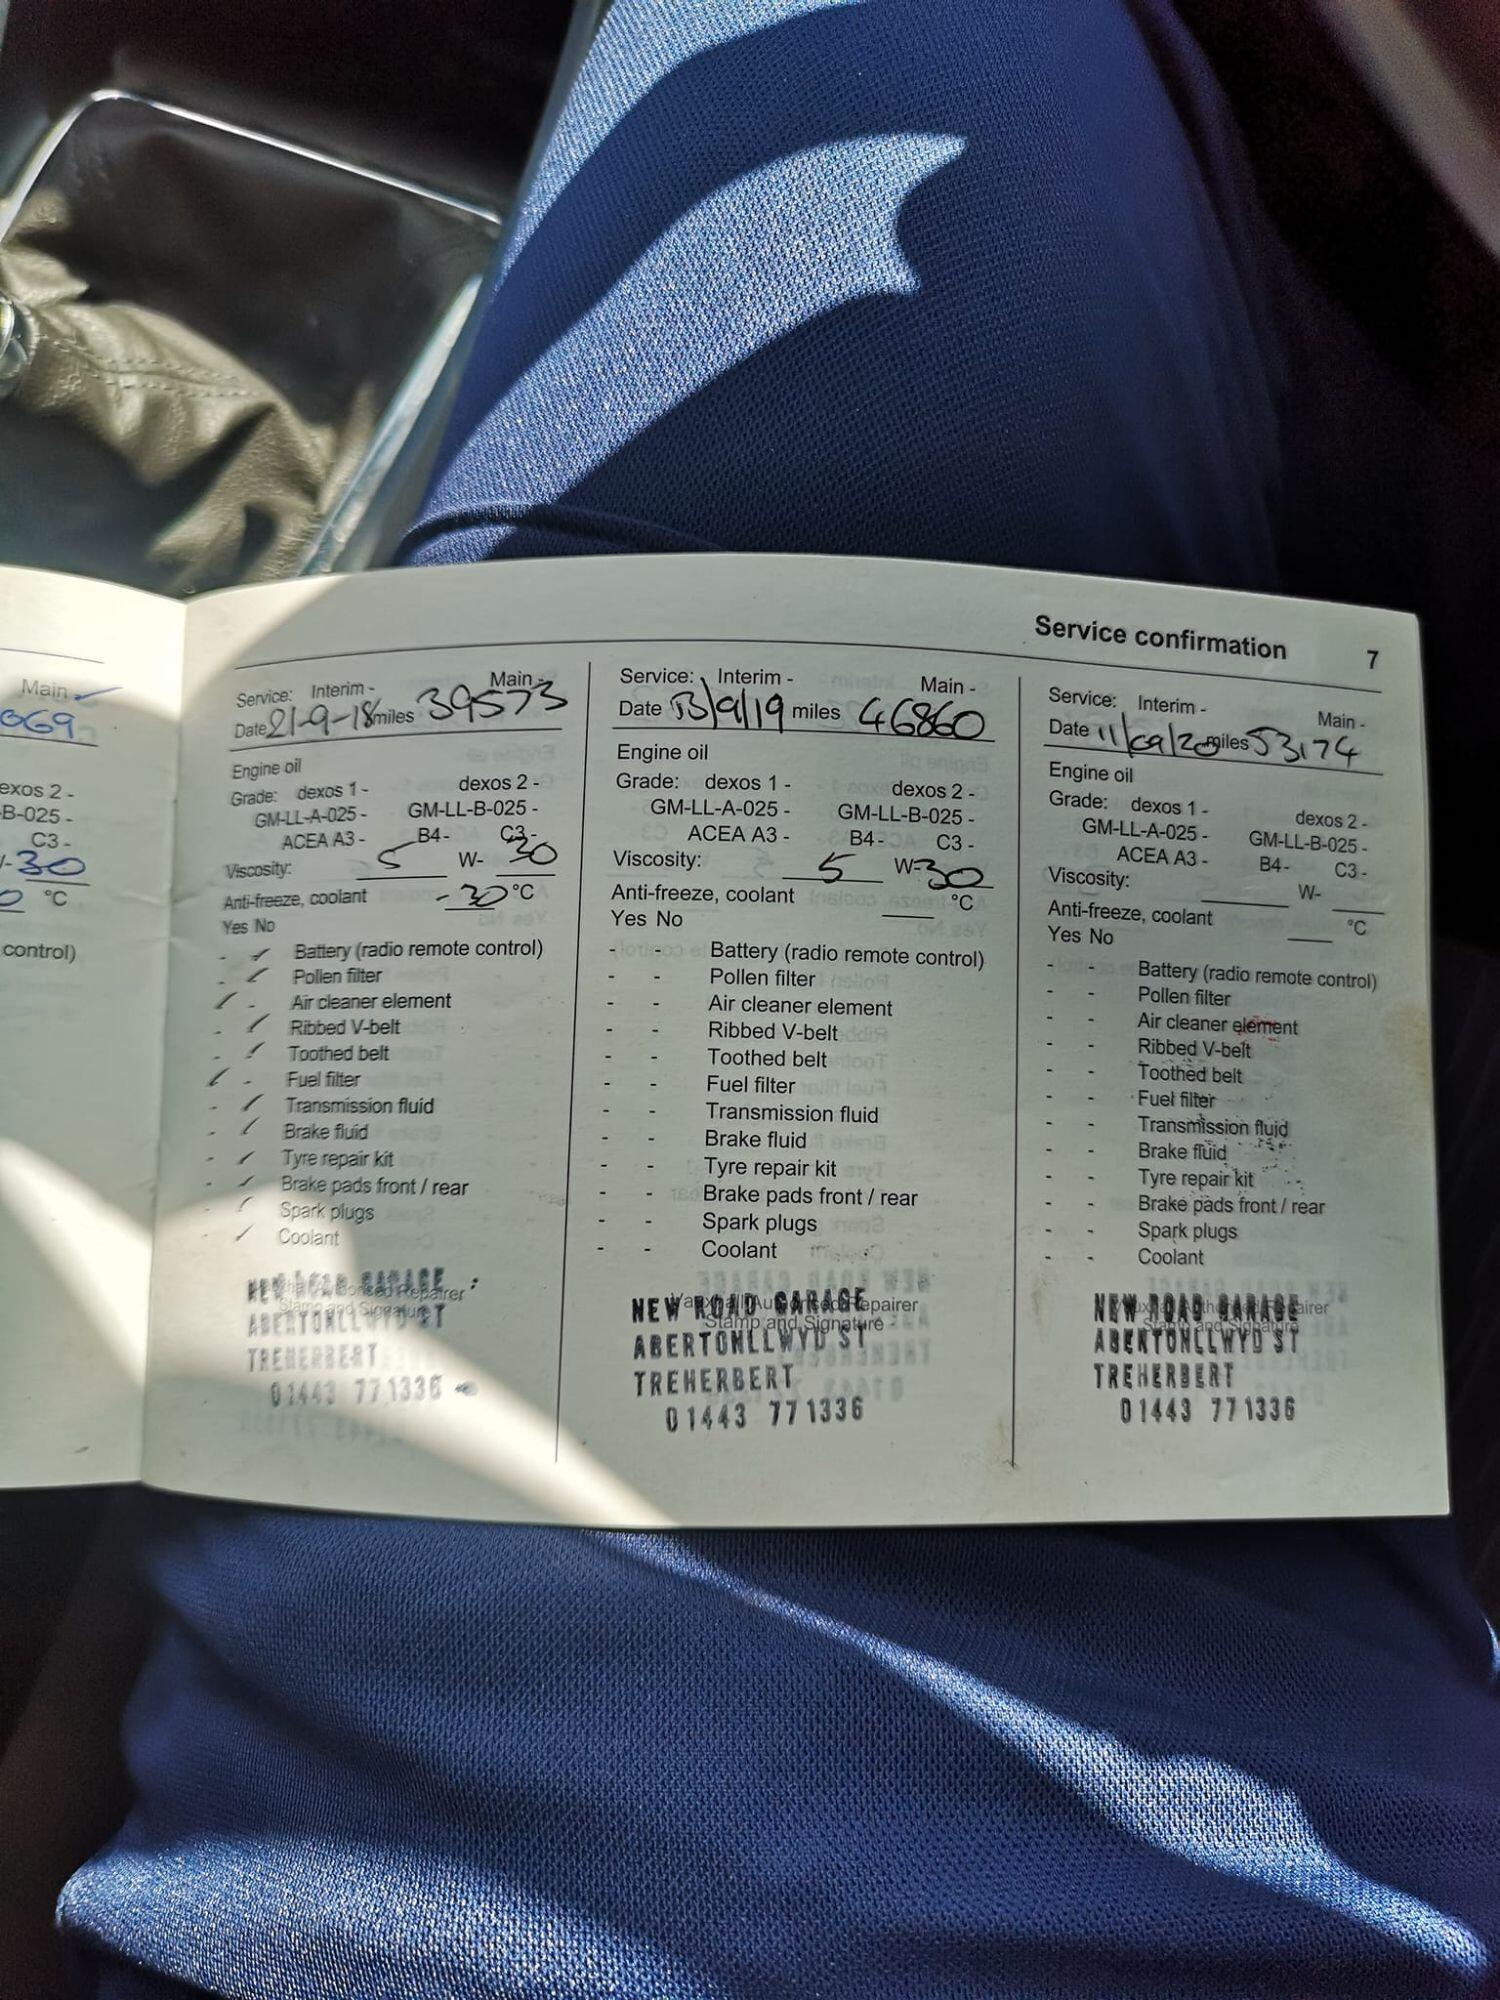 Service confirmation 7
Main -
069
exos 2 -
B-025 -
C3 -
-30
°C
control)
Service: Interim - Main -
Date 21-9-18 miles 39573
Engine oil
Grade: dexos 1 - dexos 2 -
GM-LL-A-025 - GM-LL-B-025 -
ACEA A3 - B4- C3 -
Viscosity: 5 W- 30
Anti-freeze, coolant -30 °C
Yes No
Battery (radio remote control)
Pollen filter
Air cleaner element
Ribbed V-belt
Toothed belt
Fuel filter
Transmission fluid
Brake fluid
Tyre repair kit
Brake pads front / rear
Spark plugs
Coolant
NEW ROAD GARAGE
Stamp and Signature
ABERTONLLWYD ST
TREHERBERT
01443 771336
Service: Interim - Main -
Date 13/9/19 miles 46860
Engine oil
Grade: dexos 1 - dexos 2 -
GM-LL-A-025 - GM-LL-B-025 -
ACEA A3 - B4- C3 -
Viscosity: 5 W- 30
Anti-freeze, coolant °C
Yes No
- - Battery (radio remote control)
- - Pollen filter
- - Air cleaner element
- - Ribbed V-belt
- - Toothed belt
- - Fuel filter
- - Transmission fluid
- - Brake fluid
- - Tyre repair kit
- - Brake pads front / rear
- - Spark plugs
- - Coolant
Vauxhall Authorised Repairer
NEW ROAD GARAGE
Stamp and Signature
ABERTONLLWYD ST
TREHERBERT
01443 771336
Service: Interim - Main -
Date 11/09/20 miles 53174
Engine oil
Grade: dexos 1 - dexos 2 -
GM-LL-A-025 - GM-LL-B-025 -
ACEA A3 - B4- C3 -
Viscosity: W-
Anti-freeze, coolant °C
Yes No
- - Battery (radio remote control)
- - Pollen filter
- - Air cleaner element
- - Ribbed V-belt
- - Toothed belt
- - Fuel filter
- - Transmission fluid
- - Brake fluid
- - Tyre repair kit
- - Brake pads front / rear
- - Spark plugs
- - Coolant
Vauxhall Authorised Repairer
NEW ROAD GARAGE
Stamp and Signature
ABERTONLLWYD ST
TREHERBERT
01443 771336